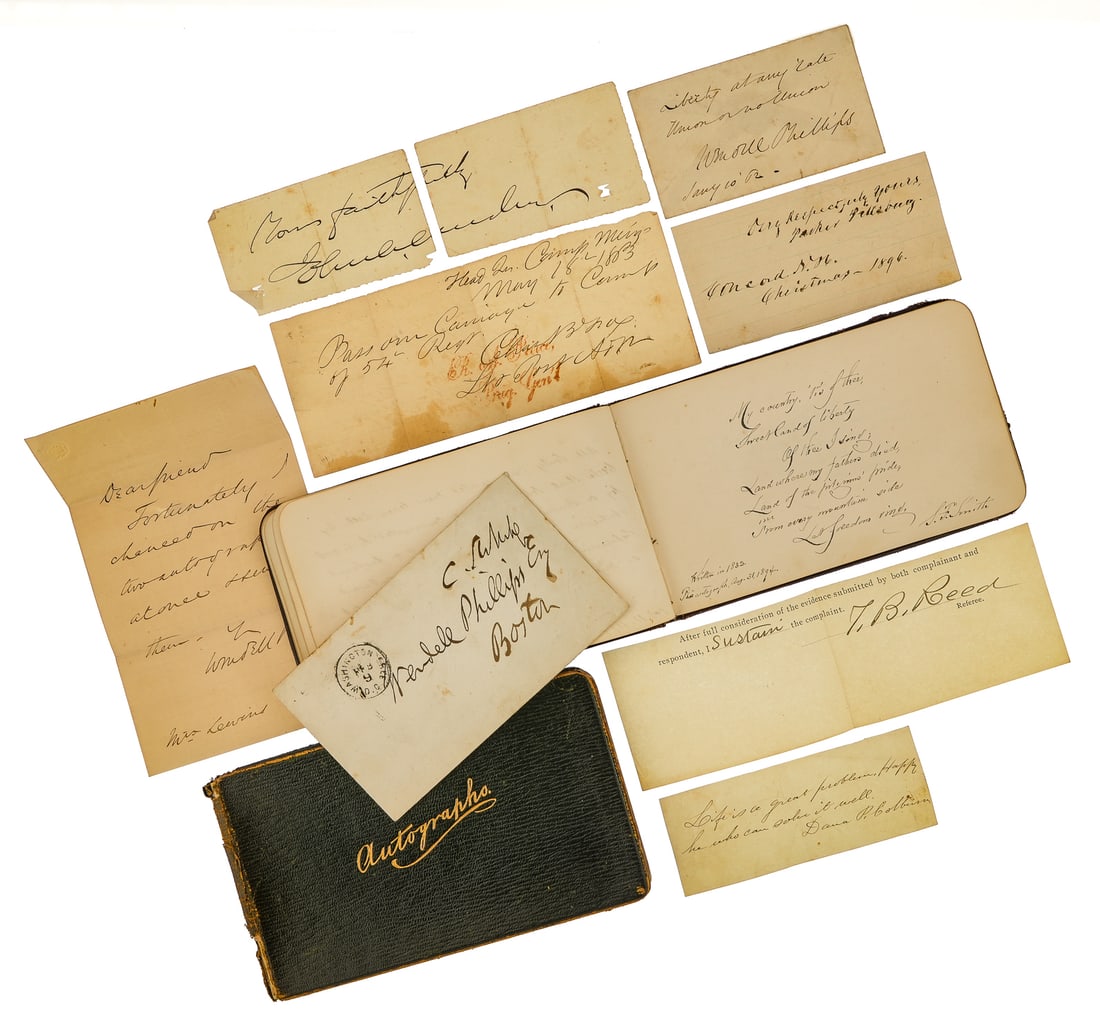 Liberty at any rate
Union or no Union
Wendell Phillips
Jany 10
Yours faithfully
Very Respectfully Yours,
Parker Pillsbury.
Concord N.H.
Christmas - 1896.
Head Qrs. Camp Meigs
May 18th 1863
Pass one Carriage to Camp
of 54th Regt
My country, 'tis of thee,
Sweet land of liberty
Of thee I sing;
Land where my fathers died,
Land of the pilgrims' pride,
From every mountain side
Let freedom ring.
S. F. Smith
Written in 1832
Aug. 31 1894.
Dear friend
Fortunately I
chanced on the
two autograph
at once
them
Mrs Lewins
Wendell Phillips Esq
Boston
WASHINGTON
After full consideration of the evidence submitted by both complainant and
respondent, I Sustain the complaint.
T. B. Reed
Referee.
Life is a great problem, Happy
he who can solve it well.
Dana P. Colburn
Autographs.